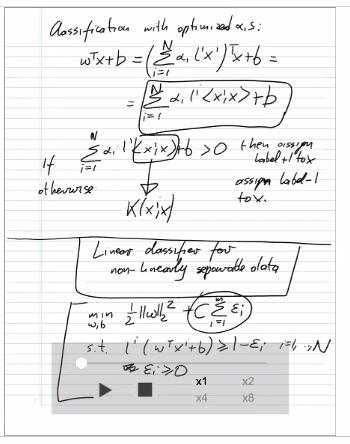 Classification with optimized α,s:
wᵀx+b = (∑ᵢ₌₁ᴺ αᵢ lⁱxⁱ)ᵀx+b =
= ∑ᵢ₌₁ᴺ αᵢ lⁱ<xⁱ,x> + b
If ∑ᵢ₌₁ᴺ αᵢ lⁱ<xⁱ,x>+b >0 then assign label+1 to x
otherwise assign label-1 to x.
K(xⁱ,x)
Linear classifier for
non-linearly separable data
min w,b ½||w||₂² + C∑ᵢ₌₁ᵐ εᵢ
s.t. lⁱ(wᵀxⁱ+b) ≥ 1-εᵢ i=1,..,N
εᵢ ≥ 0
x1 x2
x4 x8